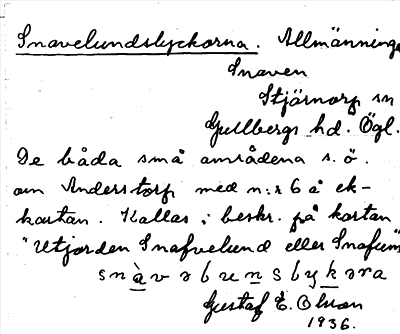 Snavelundslyckorna. Allmänninge
Snaven
Stjärnorp sn
Gullbergs hd. Ögl.
De båda små områdena s. ö.
om Anderstorp med n:r 6 å ek-
kartan. Kallas i beskr. på kartan
"Utjorden Snafvelund eller Snafven"
snàvəbunsbykəra
Gustaf E. Olsson
1936.